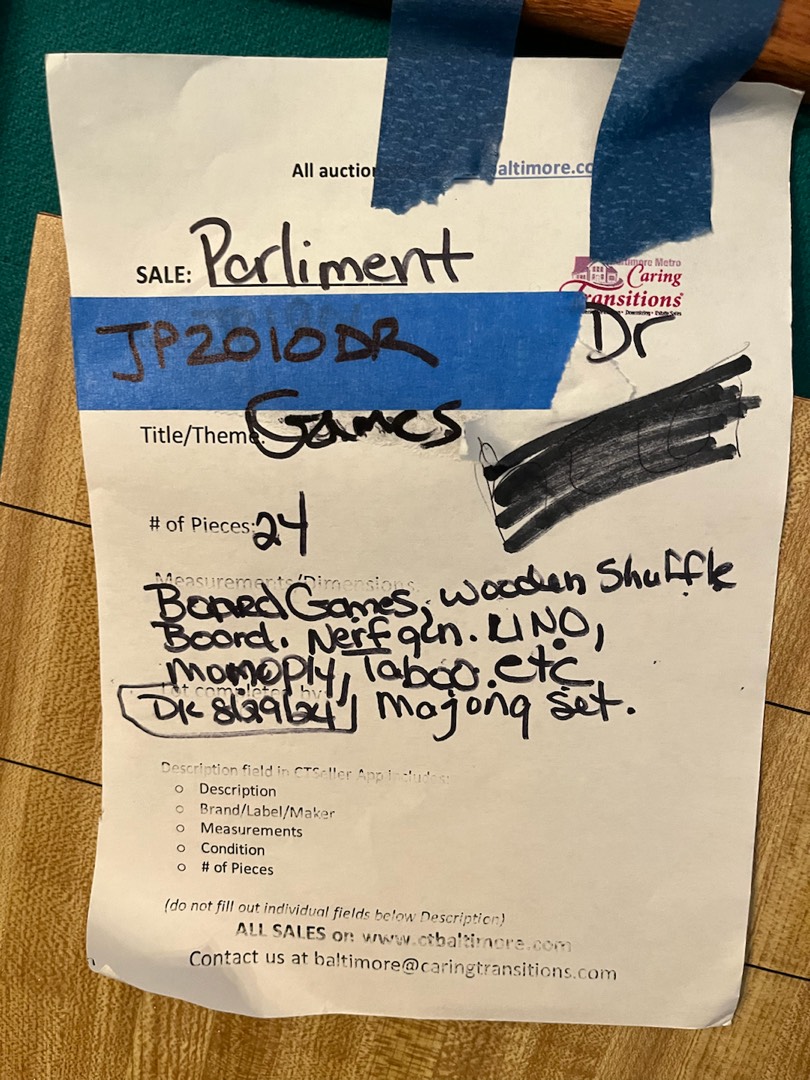 All auction altimore.co
SALE: Parliment
timore Metro
Caring
Transitions
JP2010DR
Dr
Title/Theme: Games
# of Pieces: 24
Measurements/Dimensions
Board Games, Wooden Shuffle
Board. Nerf gun. UNO,
Monoply, Taboo. etc
Lot completed by
DK 8/29/24 Majong Set.
Description field in CTSeller App includes:
o Description
o Brand/Label/Maker
o Measurements
o Condition
o # of Pieces
(do not fill out individual fields below Description)
ALL SALES on www.ctbaltimore.com
Contact us at baltimore@caringtransitions.com